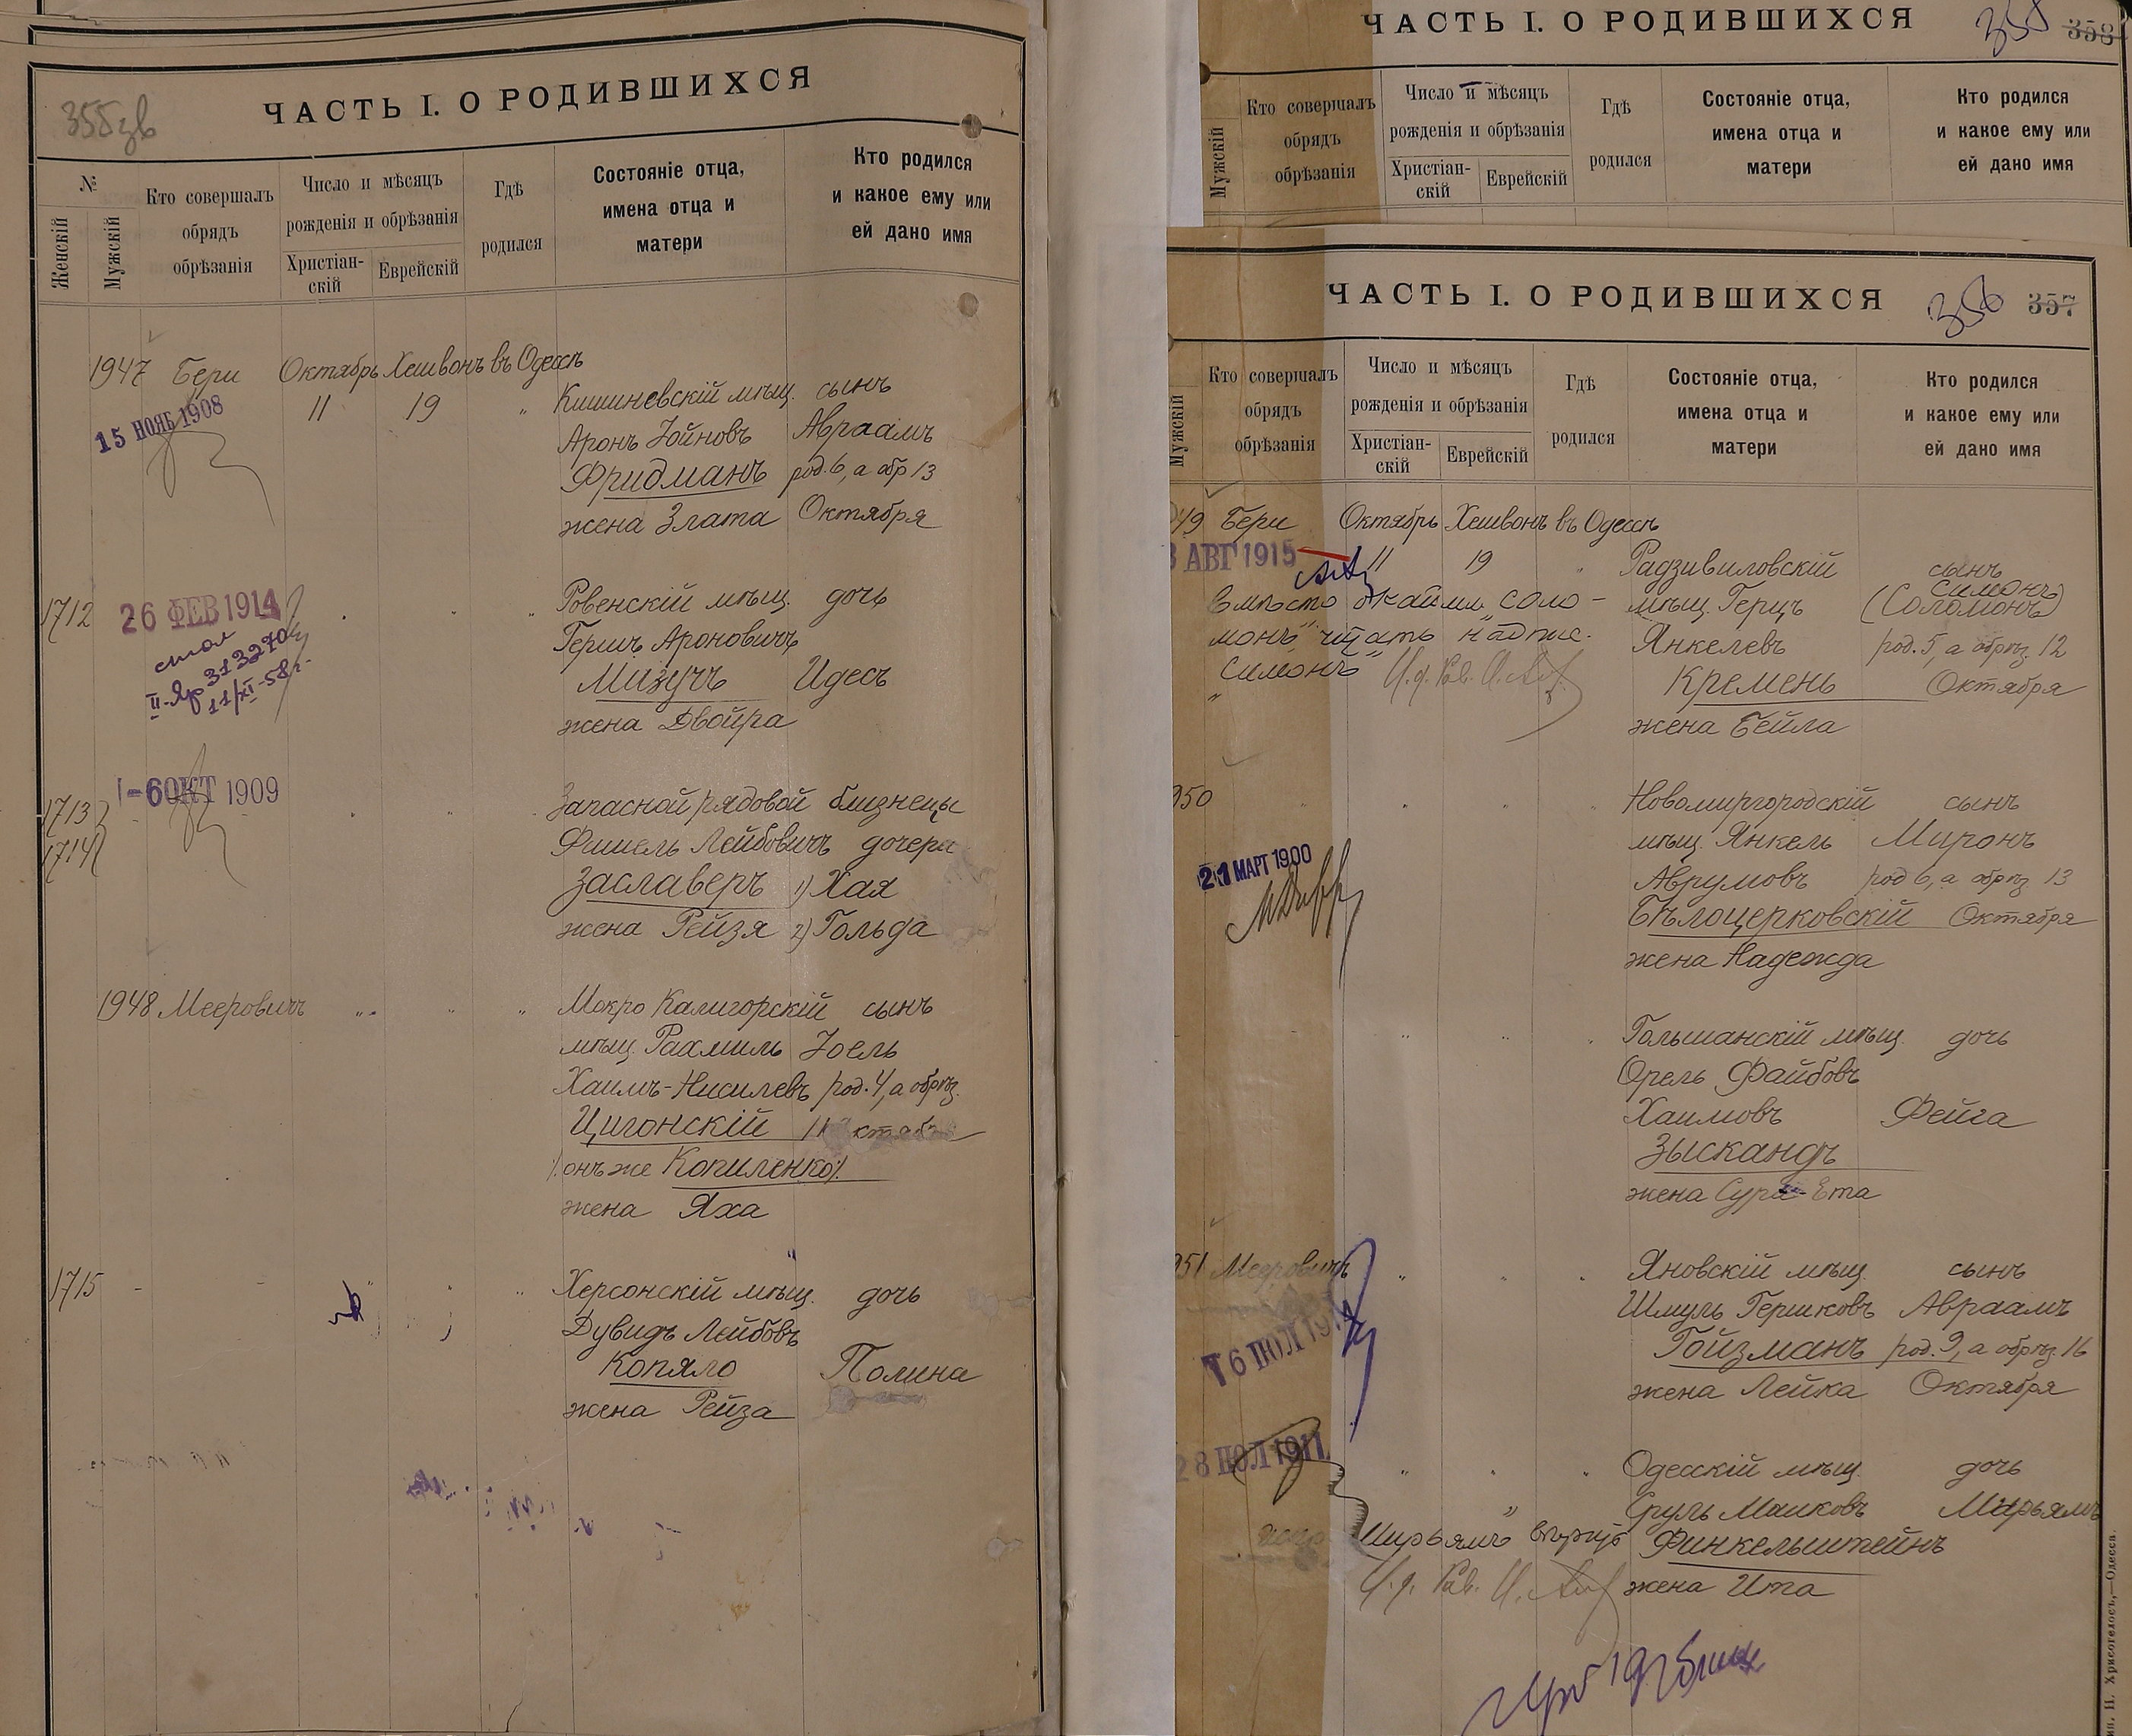 355 зв
ЧАСТЬ I. О РОДИВШИХСЯ
№
Женскій
Мужскій
Кто совершалъ
обрядъ
обрѣзанія
Число и мѣсяцъ
рожденія и обрѣзанія
Христіан-
скій
Еврейскій
Гдѣ
родился
Состояніе отца,
имена отца и
матери
Кто родился
и какое ему или
ей дано имя
1947 Бери Октябрь Хешвонъ въ Одессѣ
15 НОЯБ 1908
11 19 "
Кишиневскій мѣщ. сынъ
Аронъ Іойновъ Авраамъ
Фридманъ род. 6, а обр 13
жена Злата Октября
1712
26 ФЕВ 1914
стол
II-Яр 313270
11/XI-58г.
Ровенскій мѣщ. дочь
Гершъ Ароновичъ
Мизучъ Идесъ
жена Двойра
1713
1714
-6 ОКТ 1909
Запасной рядовой близнецы
Фишель Лейбовичъ дочери
Заславеръ 1) Хая
жена Рейзя 2) Гольда
1948 Мееровичъ " " "
Мокро Калигорскій сынъ
мѣщ. Рахмиль Іоель
Хаимъ-Нисилевъ род. 4, а обрѣз.
Цигонскій 11 Октября
онъ же Копиленко
жена Яха
1715
Херсонскій мѣщ. дочь
Дувидъ Лейбовъ
Копяло Полина
жена Рейза
ЧАСТЬ I. О РОДИВШИХСЯ
358 358
Мужскій
Кто совершалъ
обрядъ
обрѣзанія
Число и мѣсяцъ
рожденія и обрѣзанія
Христіан-
скій
Еврейскій
Гдѣ
родился
Состояніе отца,
имена отца и
матери
Кто родился
и какое ему или
ей дано имя
ЧАСТЬ I. О РОДИВШИХСЯ
356 357
Мужскій
Кто совершалъ
обрядъ
обрѣзанія
Число и мѣсяцъ
рожденія и обрѣзанія
Христіан-
скій
Еврейскій
Гдѣ
родился
Состояніе отца,
имена отца и
матери
Кто родился
и какое ему или
ей дано имя
49 Бери Октябрь Хешвонъ въ Одессѣ
АВГ 1915
11 19 "
Радзивиловскій сынъ
Симонъ
мѣщ. Герцъ (Соломонъ)
Янкелевъ род. 5, а обрѣз. 12
Кремень Октября
жена Бейла
Вмѣсто "Соло-
монъ" читать
"Симонъ" И. д. Рав.
950
21 МАРТ 1900
Новомиргородскій сынъ
мѣщ. Янкель Миронъ
Аврумовъ род 6, а обрѣз 13
Бѣлоцерковскій Октября
жена Надежда
Гольшанскій мѣщ. дочь
Орель Файбовъ
Хаимовъ Фейга
Зыскандъ
жена Сура-Ета
951 Мееровичъ
16 ІЮЛ
Яновскій мѣщ. сынъ
Шмуль Гершковъ Авраамъ
Гойзманъ род. 9, а обрѣз. 16
жена Лейка Октября
28 ІЮЛ 1911
Одесскій мѣщ. дочь
Сруль Машковъ Мирьямъ
Финкельштейнъ
жена Ита
Мирьямъ вѣрно
И. д. Рав.
Хрисогелосъ,—Одесса.